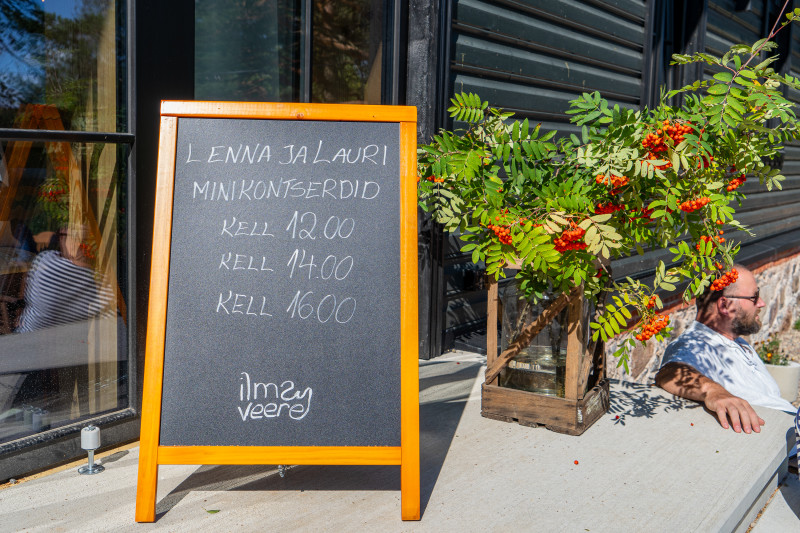 LENNA JA LAURI
MINIKONTSERDID
KELL 12.00
KELL 14.00
KELL 16.00
ilmsy
veere